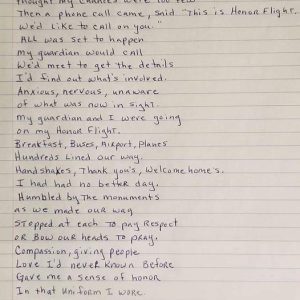 thought my chances were too few
Then a phone call came, said "This is Honor Flight.
We'd like to call on you."
All was set to happen
My guardian would call
We'd meet to get the details
I'd find out what's involved.
Anxious, nervous, unaware
of what was now in sight.
My guardian and I were going
on my Honor Flight.
Breakfast, Buses, Airport, Planes
Hundreds lined our way.
Handshakes, Thank you's, Welcome home's.
I had had no better day.
Humbled by the monuments
as we made our way
Stopped at each to pay respect
or bow our heads to pray.
Compassion, giving people
Love I'd never known before
Gave me a sense of honor
In that uniform I wore.